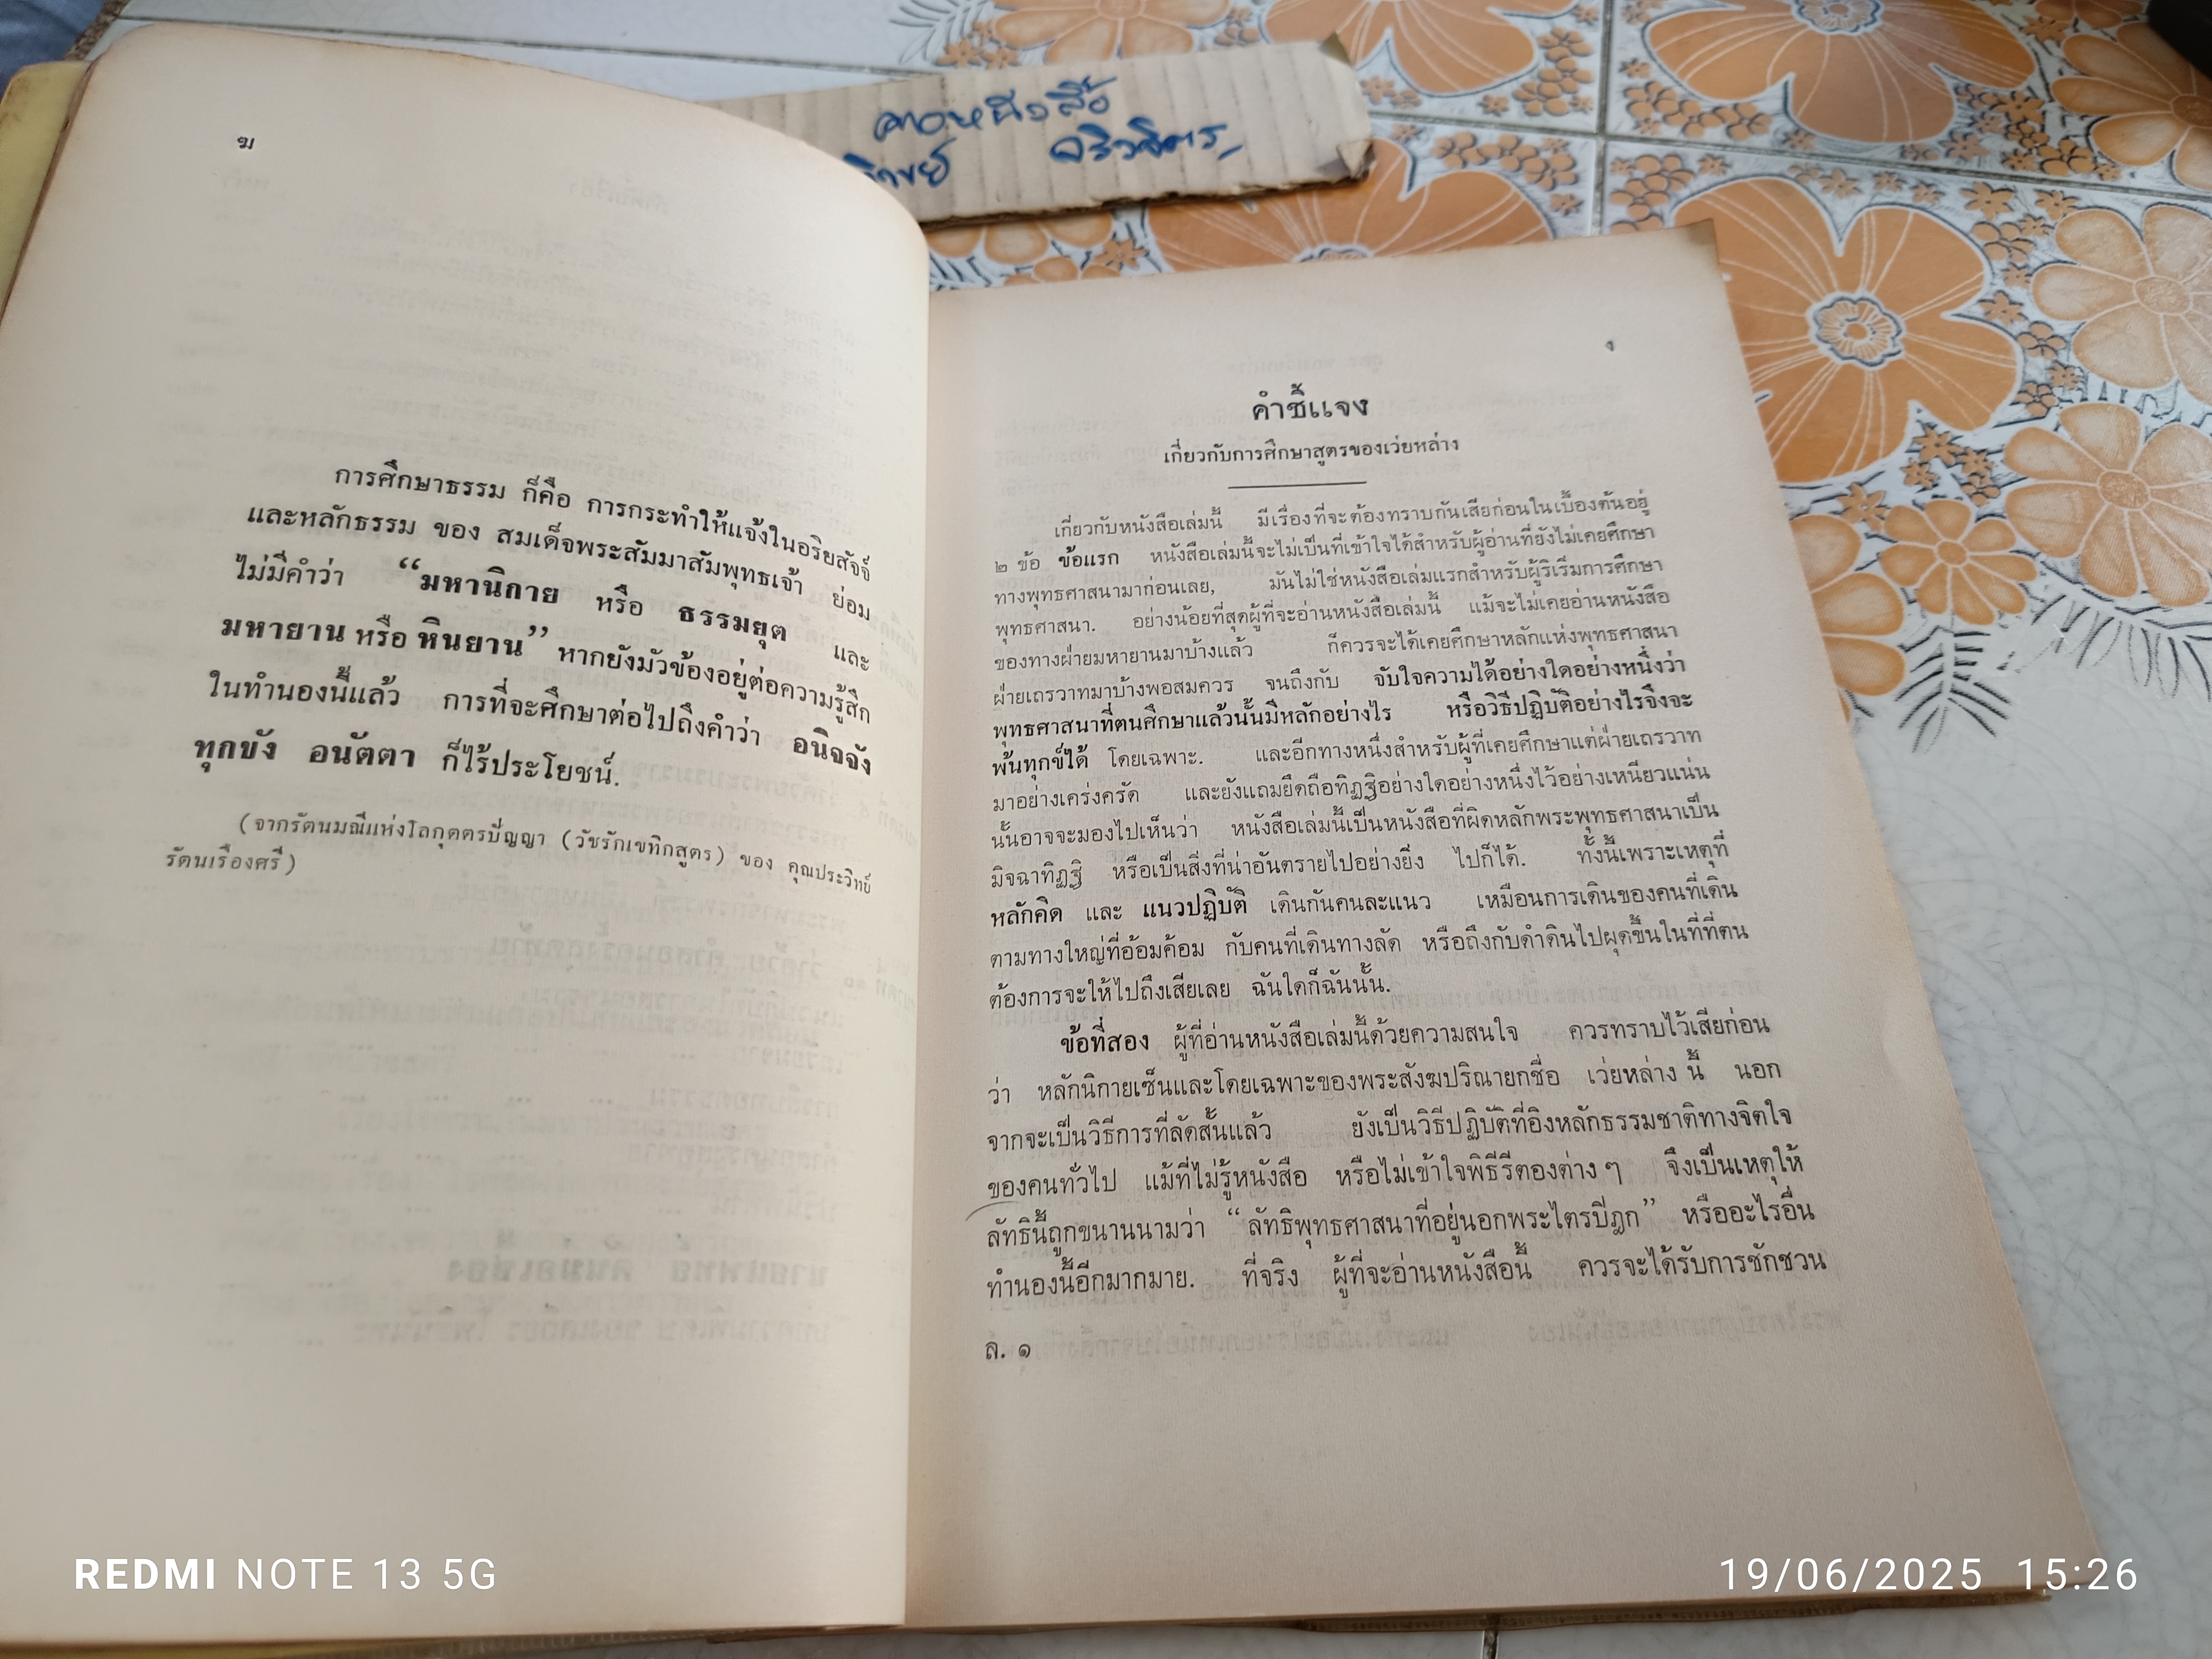 ฆ
การศึกษาธรรม ก็คือ การกระทำให้แจ้งในอริยสัจจ์
และหลักธรรม ของ สมเด็จพระสัมมาสัมพุทธเจ้า ย่อม
ไม่มีคำว่า “มหานิกาย หรือ ธรรมยุต และ
มหายาน หรือ หินยาน” หากยังมัวข้องอยู่ต่อความรู้สึก
ในทำนองนี้แล้ว การที่จะศึกษาต่อไปถึงคำว่า อนิจจัง
ทุกขัง อนัตตา ก็ไร้ประโยชน์.
(จากรัตนมณีแห่งโลกุตตรปัญญา (วัชรักเขทิกสูตร) ของ คุณประวิทย์
รัตนเรืองศรี)
ง
คำชี้แจง
เกี่ยวกับการศึกษาสูตรของเว่ยหล่าง
เกี่ยวกับหนังสือเล่มนี้ มีเรื่องที่จะต้องทราบกันเสียก่อนในเบื้องต้นอยู่
๒ ข้อ ข้อแรก หนังสือเล่มนี้จะไม่เป็นที่เข้าใจได้สำหรับผู้อ่านที่ยังไม่เคยศึกษา
ทางพุทธศาสนามาก่อนเลย, มันไม่ใช่หนังสือเล่มแรกสำหรับผู้ริเริ่มการศึกษา
พุทธศาสนา. อย่างน้อยที่สุดผู้ที่จะอ่านหนังสือเล่มนี้ แม้จะไม่เคยอ่านหนังสือ
ของทางฝ่ายมหายานมาบ้างแล้ว ก็ควรจะได้เคยศึกษาหลักแห่งพุทธศาสนา
ฝ่ายเถรวาทมาบ้างพอสมควร จนถึงกับ จับใจความได้อย่างใดอย่างหนึ่งว่า
พุทธศาสนาที่ตนศึกษาแล้วนั้นมีหลักอย่างไร หรือวิธีปฏิบัติอย่างไรจึงจะ
พ้นทุกข์ได้ โดยเฉพาะ. และอีกทางหนึ่งสำหรับผู้ที่เคยศึกษาแต่ฝ่ายเถรวาท
มาอย่างเคร่งครัด และยังแถมยึดถือทิฏฐิอย่างใดอย่างหนึ่งไว้อย่างเหนียวแน่น
นั้นอาจจะมองไปเห็นว่า หนังสือเล่มนี้เป็นหนังสือที่ผิดหลักพระพุทธศาสนาเป็น
มิจฉาทิฏฐิ หรือเป็นสิ่งที่น่าอันตรายไปอย่างยิ่ง ไปก็ได้. ทั้งนี้เพราะเหตุที่
หลักคิด และ แนวปฏิบัติ เดินกันคนละแนว เหมือนการเดินของคนที่เดิน
ตามทางใหญ่ที่อ้อมค้อม กับคนที่เดินทางลัด หรือถึงกับดำดินไปผุดขึ้นในที่ที่ตน
ต้องการจะให้ไปถึงเสียเลย ฉันใดก็ฉันนั้น.
ข้อที่สอง ผู้ที่อ่านหนังสือเล่มนี้ด้วยความสนใจ ควรทราบไว้เสียก่อน
ว่า หลักนิกายเซ็นและโดยเฉพาะของพระสังฆปริณายกชื่อ เว่ยหล่าง นี้ นอก
จากจะเป็นวิธีการที่ลัดสั้นแล้ว ยังเป็นวิธีปฏิบัติที่อิงหลักธรรมชาติทางจิตใจ
ของคนทั่วไป แม้ที่ไม่รู้หนังสือ หรือไม่เข้าใจพิธีรีตองต่าง ๆ จึงเป็นเหตุให้
ลัทธินี้ถูกขนานนามว่า “ลัทธิพุทธศาสนาที่อยู่นอกพระไตรปิฎก” หรืออะไรอื่น
ทำนองนี้อีกมากมาย. ที่จริง ผู้ที่จะอ่านหนังสือนี้ ควรจะได้รับการชักชวน
ล. ๑
REDMI NOTE 13 5G
19/06/2025 15:26